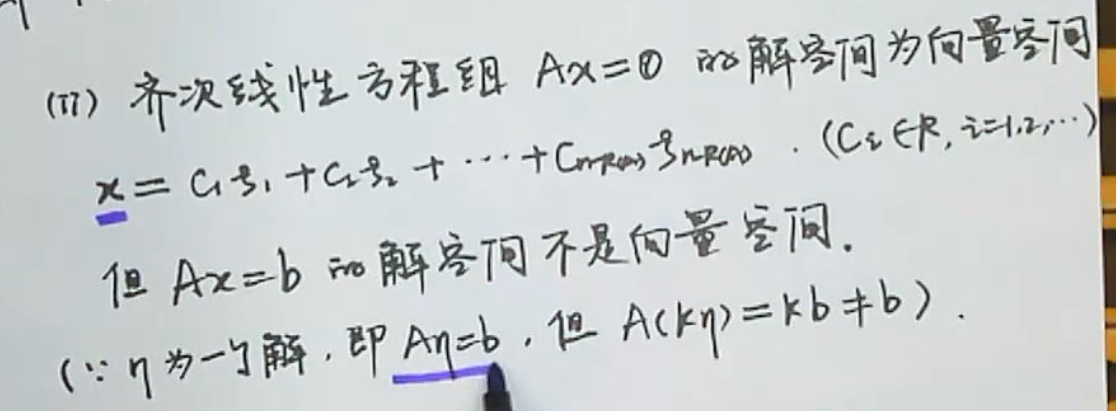 (Ⅱ) 齐次线性方程组 Ax=0 的解空间为向量空间
x = C₁ξ₁ + C₂ξ₂ + ⋯ + Cₙ₋R(A) ξₙ₋R(A) . (Cᵢ∈R, i=1,2,⋯)
但 Ax=b 的解空间不是向量空间.
(∵ η为一个解, 即 Aη=b, 但 A(kη)=kb≠b).